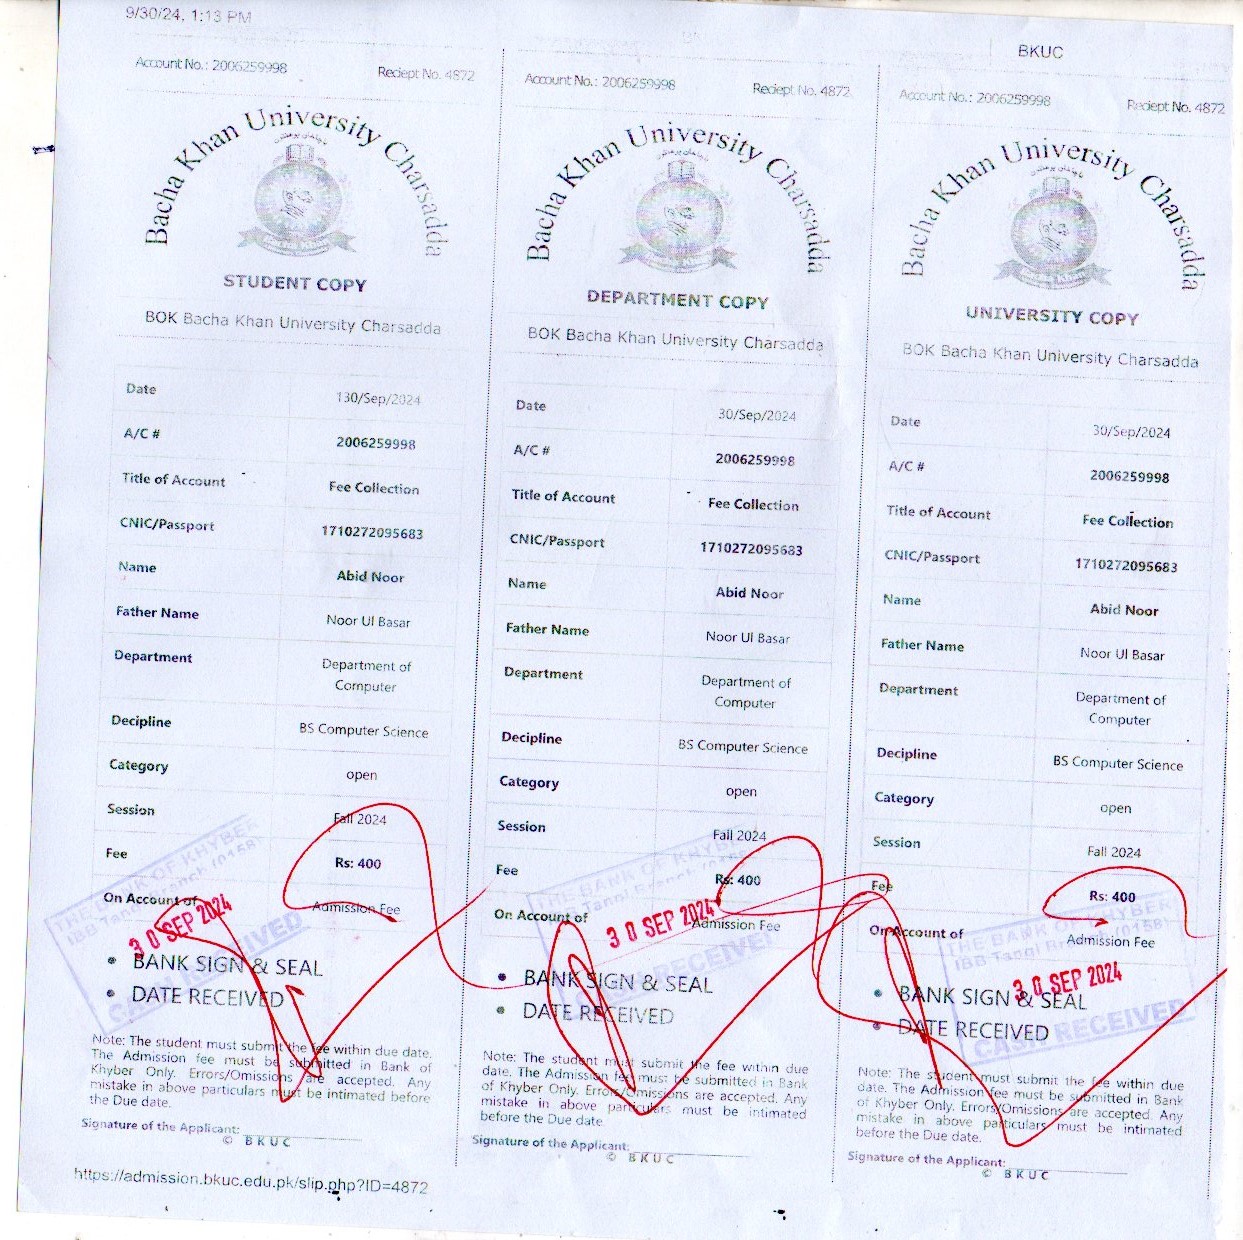 9/30/24, 1:13 PM
BKUC
Account No.: 2006259998 Reciept No. 4872
Bacha Khan University Charsadda
STUDENT COPY
BOK Bacha Khan University Charsadda
Date 130/Sep/2024
A/C # 2006259998
Title of Account Fee Collection
CNIC/Passport 1710272095683
Name Abid Noor
Father Name Noor Ul Basar
Department Department of
Computer
Decipline BS Computer Science
Category open
Session Fall 2024
Fee Rs: 400
On Account of Admission Fee
THE BANK OF KHYBER
IBB Tangi Branch (0158)
30 SEP 2024
CASH RECEIVED
• BANK SIGN & SEAL
• DATE RECEIVED
Note: The student must submit the fee within due date.
The Admission fee must be submitted in Bank of
Khyber Only. Errors/Omissions are accepted. Any
mistake in above particulars must be intimated before
the Due date.
Signature of the Applicant:
© BKUC
Account No.: 2006259998 Reciept No. 4872
Bacha Khan University Charsadda
DEPARTMENT COPY
BOK Bacha Khan University Charsadda
Date 30/Sep/2024
A/C # 2006259998
Title of Account Fee Collection
CNIC/Passport 1710272095683
Name Abid Noor
Father Name Noor Ul Basar
Department Department of
Computer
Decipline BS Computer Science
Category open
Session Fall 2024
Fee Rs: 400
On Account of Admission Fee
THE BANK OF KHYBER
IBB Tangi Branch (0158)
30 SEP 2024
CASH RECEIVED
• BANK SIGN & SEAL
• DATE RECEIVED
Note: The student must submit the fee within due
date. The Admission fee must be submitted in Bank
of Khyber Only. Errors/Omissions are accepted. Any
mistake in above particulars must be intimated
before the Due date.
Signature of the Applicant:
© BKUC
Account No.: 2006259998 Reciept No. 4872
Bacha Khan University Charsadda
UNIVERSITY COPY
BOK Bacha Khan University Charsadda
Date 30/Sep/2024
A/C # 2006259998
Title of Account Fee Collection
CNIC/Passport 1710272095683
Name Abid Noor
Father Name Noor Ul Basar
Department Department of
Computer
Decipline BS Computer Science
Category open
Session Fall 2024
Fee Rs: 400
On Account of Admission Fee
THE BANK OF KHYBER
IBB Tangi Branch (0158)
30 SEP 2024
CASH RECEIVED
• BANK SIGN & SEAL
• DATE RECEIVED
Note: The student must submit the fee within due
date. The Admission fee must be submitted in Bank
of Khyber Only. Errors/Omissions are accepted. Any
mistake in above particulars must be intimated
before the Due date.
Signature of the Applicant:
© BKUC
https://admission.bkuc.edu.pk/slip.php?ID=4872